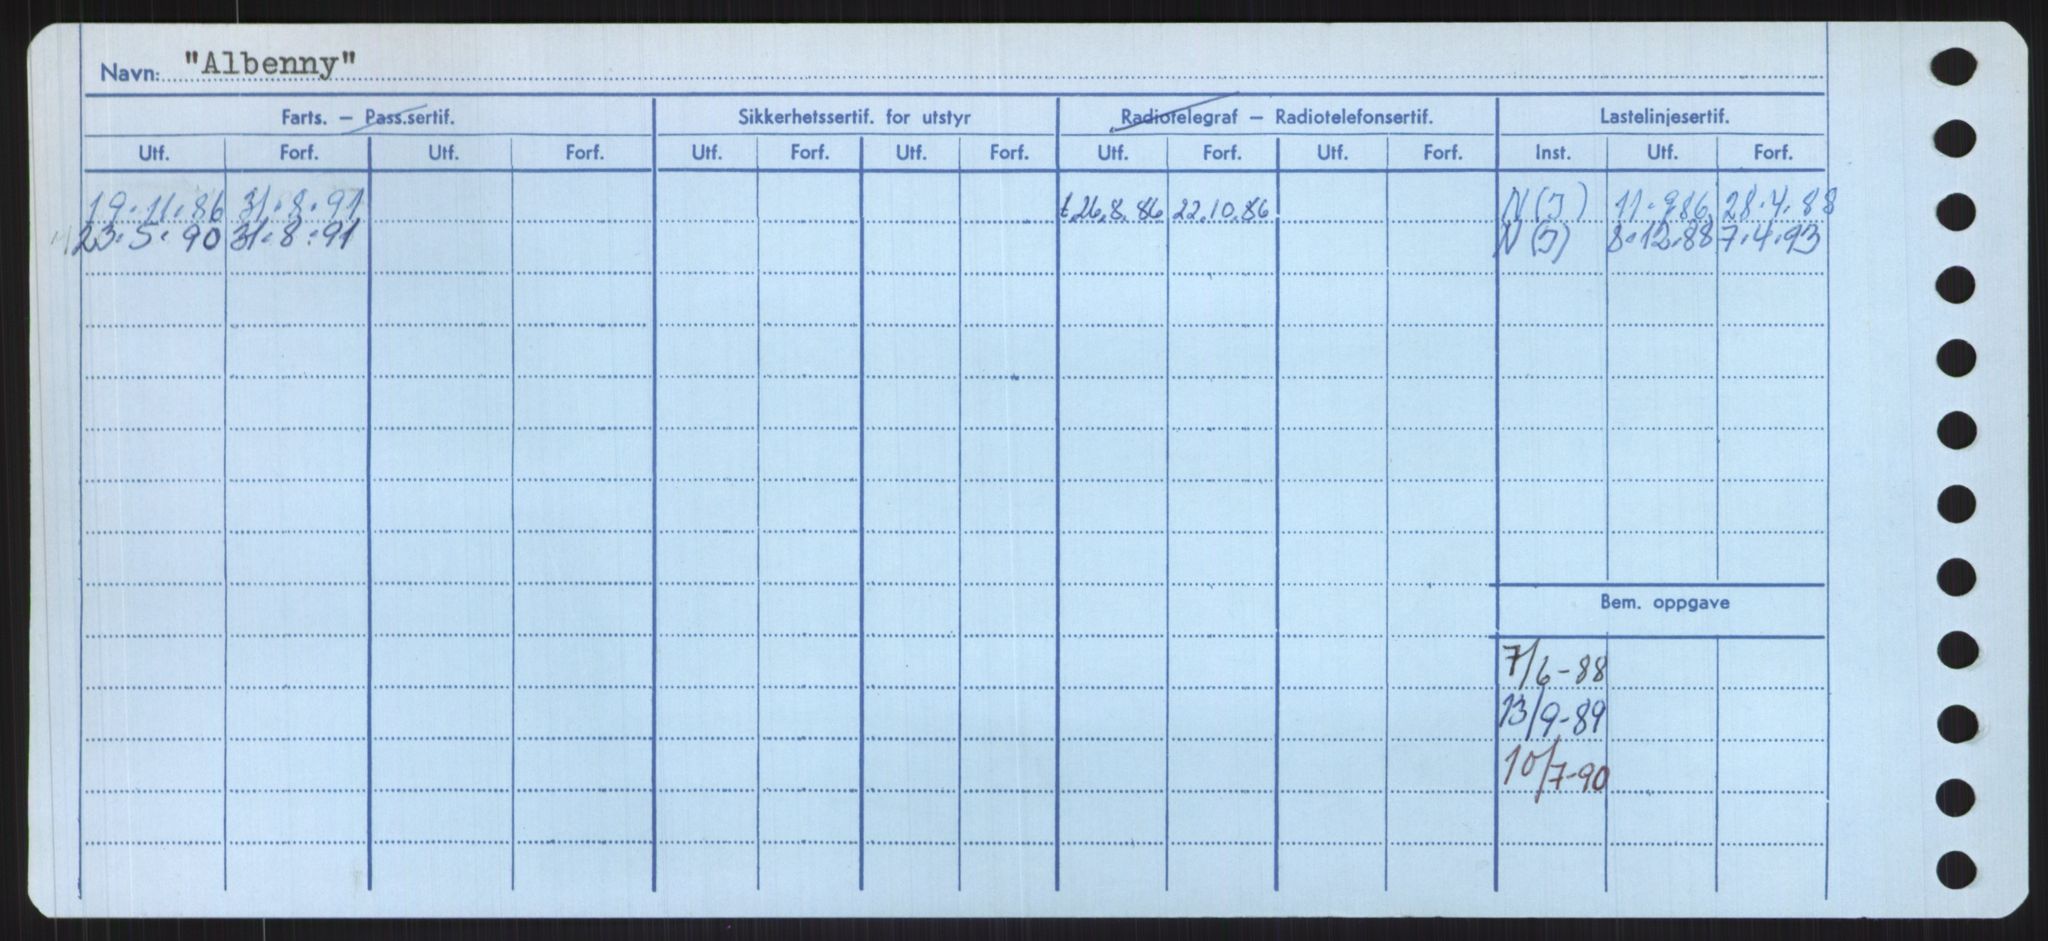 Navn: "Albenny"
Farts. — Pass.sertif. Sikkerhetssertif. for utstyr Radiotelegraf — Radiotelefonsertif. Lastelinjesertif.
Utf. Forf. Utf. Forf. Utf. Forf. Utf. Forf. Utf. Forf. Utf. Forf. Inst. Utf. Forf.
19.11.86 31.8.91 t.26.8.86 22.10.86 N(I) 11.9.86 28.4.88
23.5.90 31.8.91 N(I) 8.12.88 7.4.93
Bem. oppgave
7/6-88
13/9-89
10/7-90